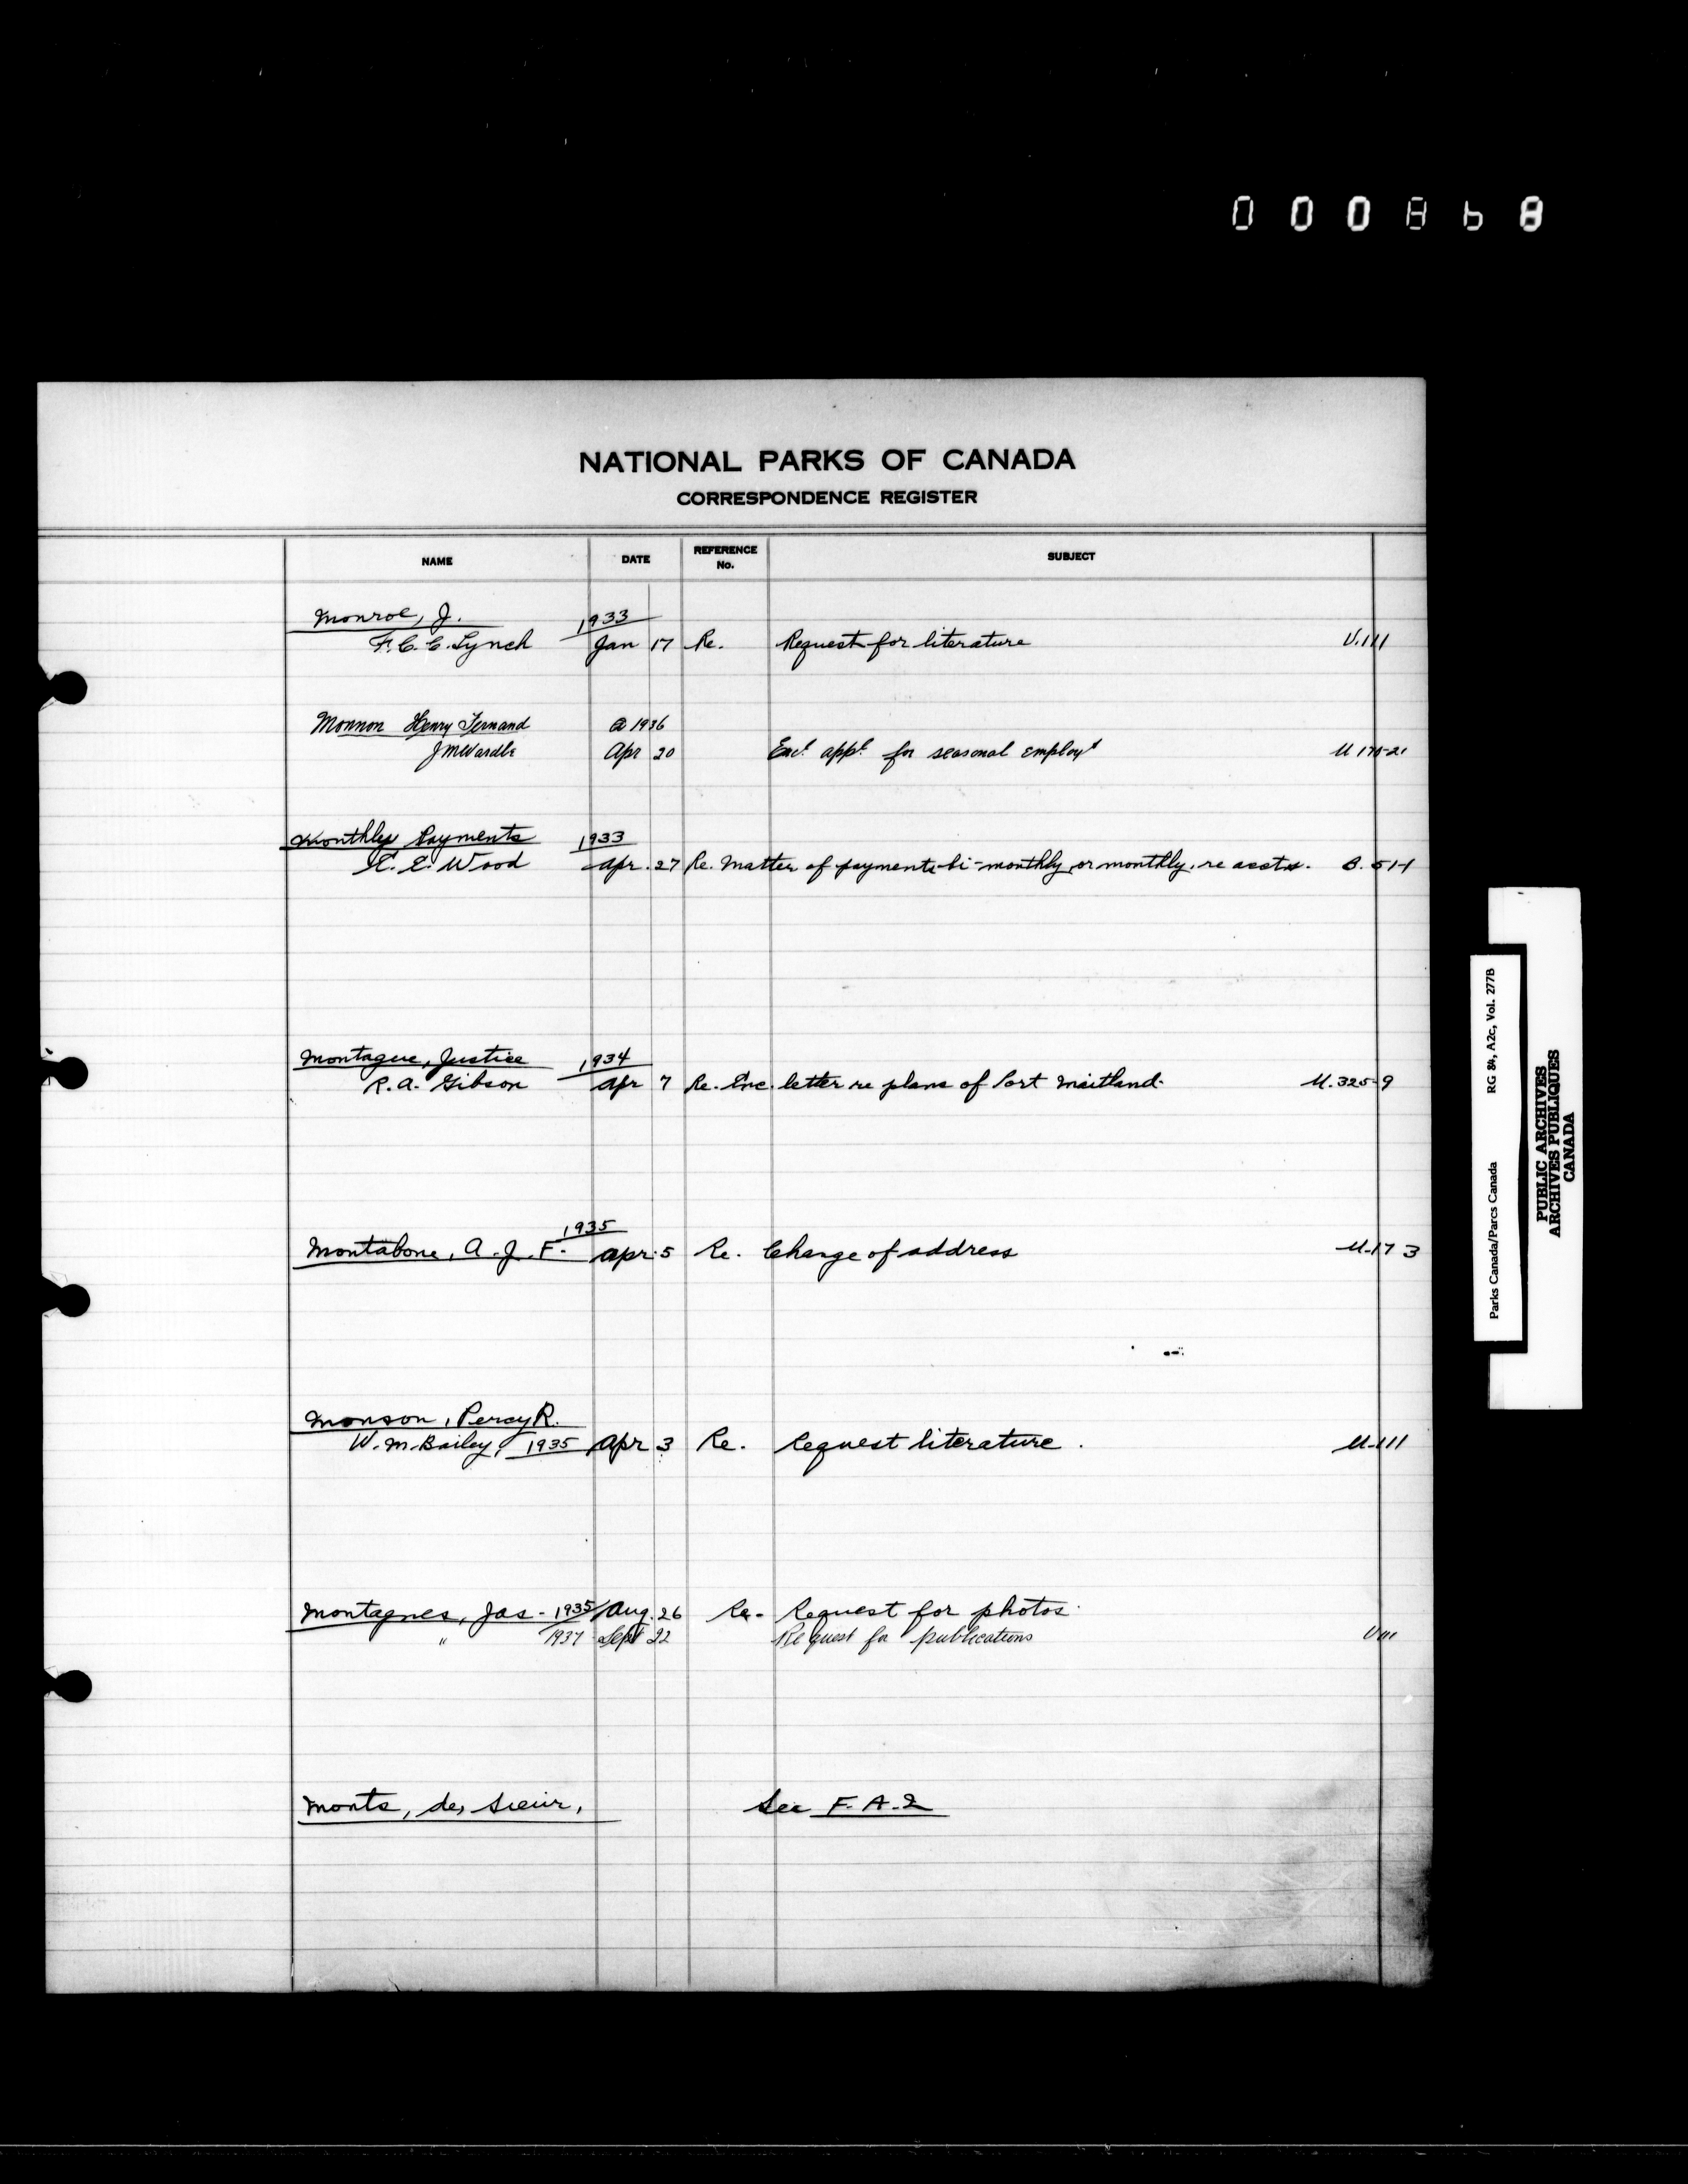 000868
NATIONAL PARKS OF CANADA
CORRESPONDENCE REGISTER
NAME DATE REFERENCE No. SUBJECT
Monroe, J. 1933
F. C. C. Lynch Jan 17 Re. Request for literature V.111
Monnon Henry Fernand 1936
JMWardle Apr 20 Encl. appl. for seasonal employt U 175-21
Monthly Payments 1933
E. E. Wood Apr. 27 Re. Matter of payments bi-monthly or monthly, re accts. B. 51-1
Montague, Justice 1934
R. A. Gibson Apr 7 Re. Enc. letter re plans of Port Maitland. U. 325-9
1935
Montabone, A. J. F. Apr. 5 Re. Change of address U-173
Monson, Percy R.
W. M. Bailey, 1935 Apr 3 Re. Request literature. U-111
Montagnes, Jas - 1935 Aug. 26 Re- Request for photos.
" 1937 Sept 22 Request for publications V111
Monts, de, Sieur, See F. A. 2
Parks Canada/Parcs Canada RG 84, A2c, Vol. 277B
PUBLIC ARCHIVES
ARCHIVES PUBLIQUES
CANADA